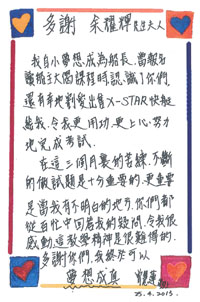 多謝 余耀輝先生夫人
我自小夢想成為船長,當報名
課程時認識了你們,
還有幸地到愛出售X-STAR快艇
給我,令我更用功,更上心努力
地完成考試。
在這三個月裏的苦練,不斷
的做試題是十分重要的,更重要
是當我有不明白的地方,你們都
從百忙中回答我的疑問,令我很
感動,這教學精神是很難得的,
多謝你們,我終於可以
夢想成真
25.4.2013.